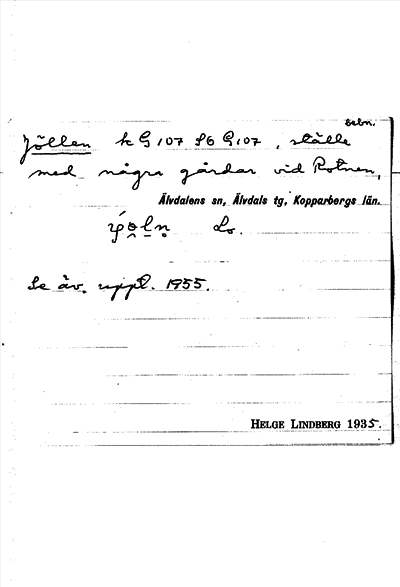 bebn.
Jöllen k G 107 SO G 107, ställe
med några gårdar vid Rotnen,
Älvdalens sn, Älvdals tg, Kopparbergs län.
Lo.
Se äv. uppl. 1955.
HELGE LINDBERG 1935.